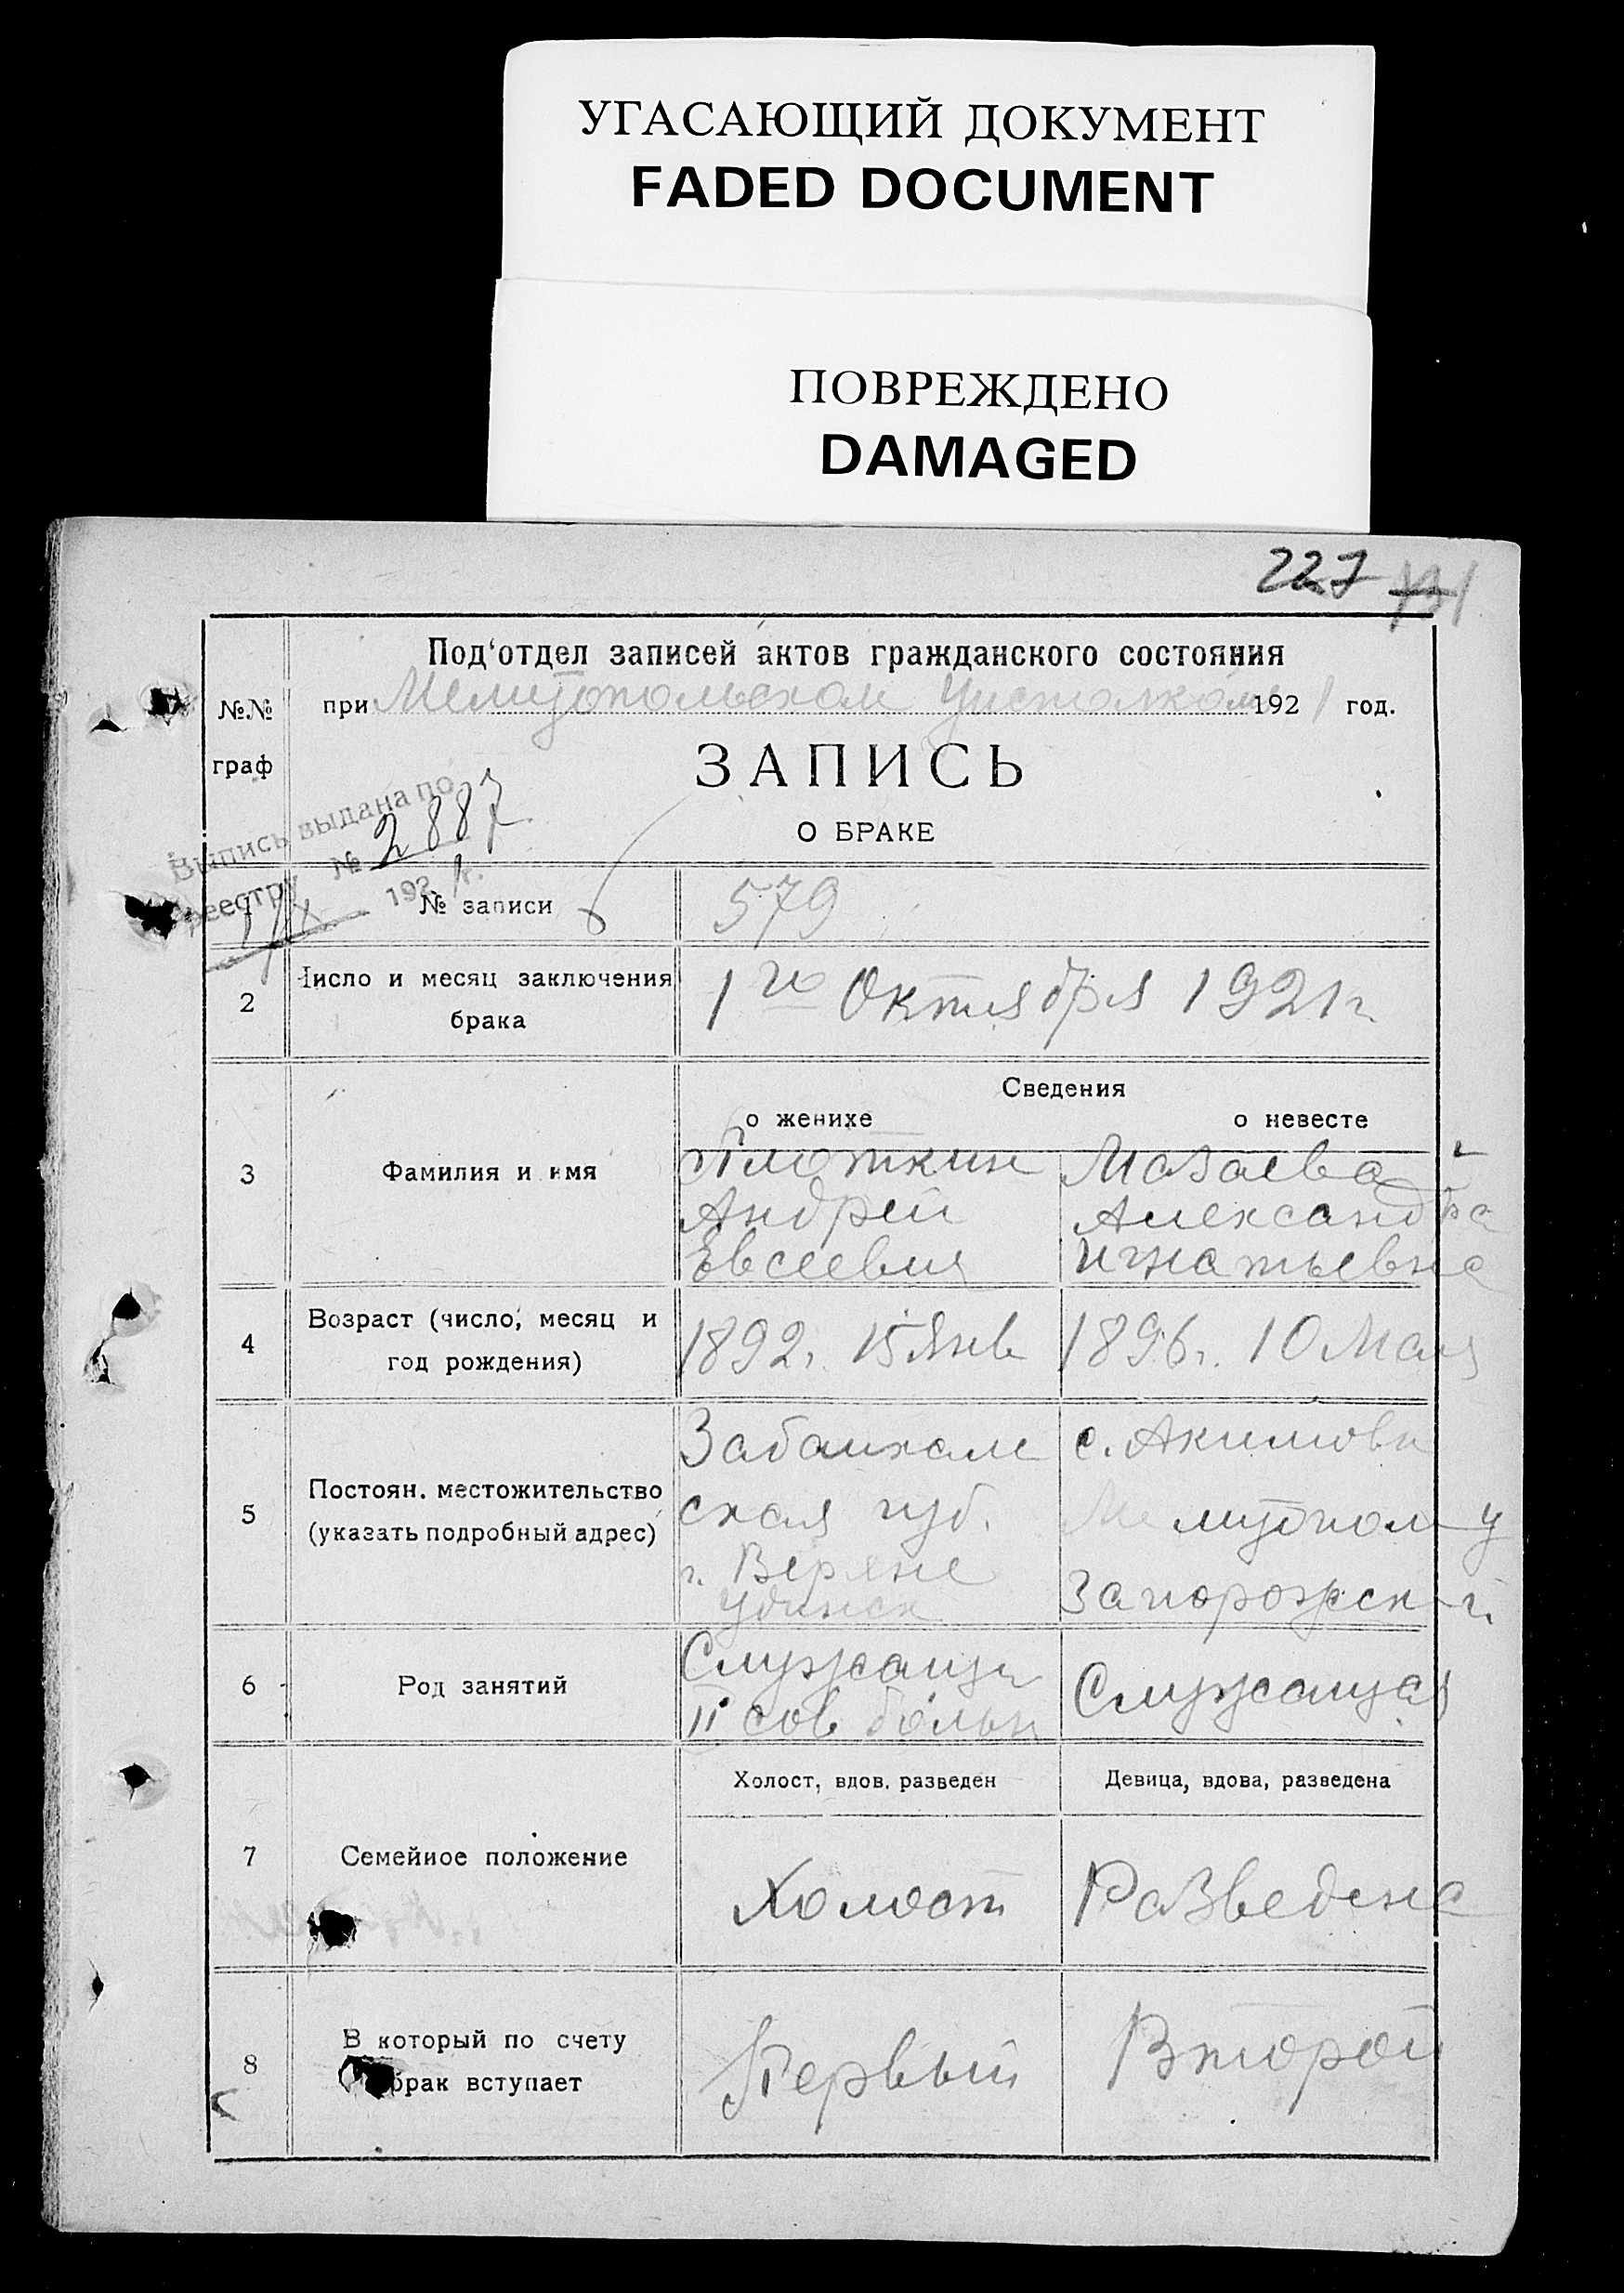 УГАСАЮЩИЙ ДОКУМЕНТ
FADED DOCUMENT
ПОВРЕЖДЕНО
DAMAGED
227
Под'отдел записей актов гражданского состояния
№№ граф
при Мелитопольском Уисполкоме 1921 год.
ЗАПИСЬ
О БРАКЕ
Выпись выдана по
реестру № 2887
192 г.
№ записи 579
2 Число и месяц заключения брака 1го Октября 1921 г.
Сведения
о женихе о невесте
3 Фамилия и имя
Плоткин Мазаева
Андрей Александра
Евсеевич Игнатьевна
4 Возраст (число, месяц и год рождения)
1892 г. 15 Янв 1896 г. 10 Мая
5 Постоян. местожительство (указать подробный адрес)
Забайкаль с. Акимовк
ская губ. Мелитопол у
г. Верхне Запорожск г.
Удинск
6 Род занятий
Служащи Служащая
II сов больн
Холост, вдов. разведен Девица, вдова, разведена
7 Семейное положение
Холост Разведена
8 В который по счету брак вступает
Первый Второй